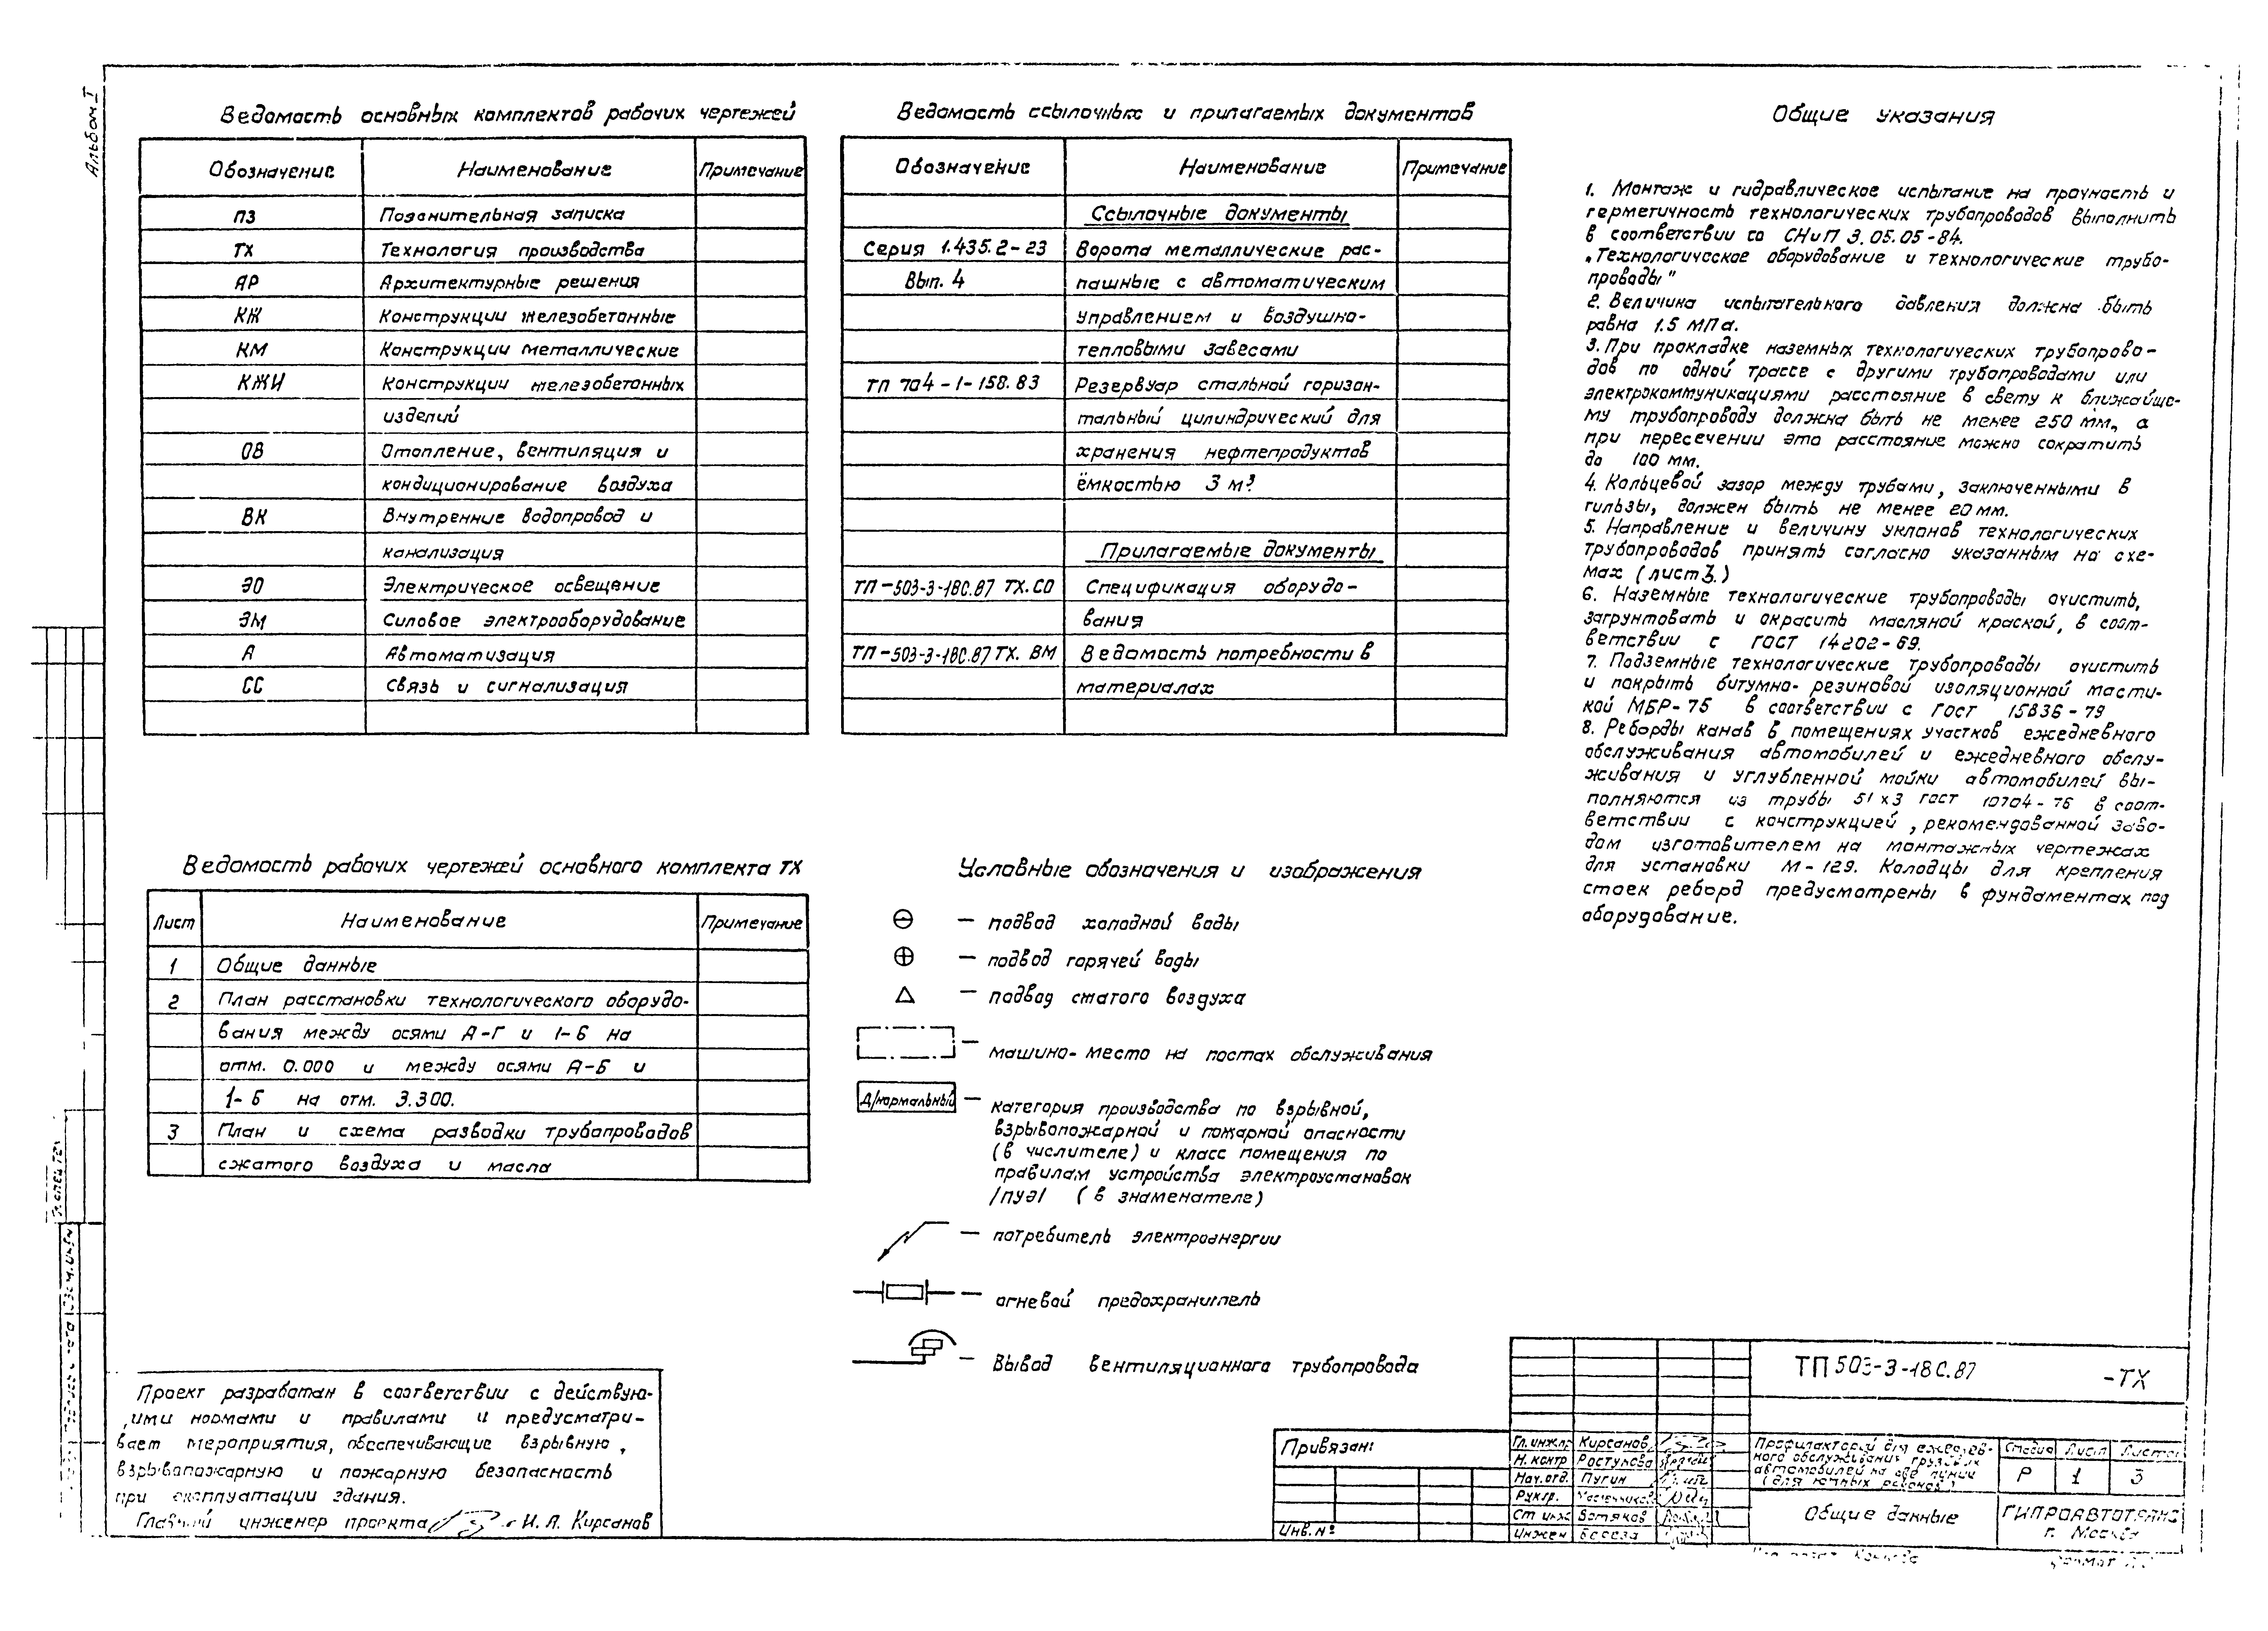 Альбом I
Ведомость основных комплектов рабочих чертежей
Обозначение Наименование Примечание
ПЗ Позснительная записка
ТХ Технология производства
АР Архитектурные решения
КЖ Конструкции железобетонные
КМ Конструкции металлические
КЖИ Конструкции железобетонных
изделий
ОВ Отопление, вентиляция и
кондиционирование воздуха
ВК Внутренние водопровод и
канализация
ЭО Электрическое освещение
ЭМ Силовое электрооборудование
А Автоматизация
СС Связь и сигнализация
Ведомость ссылочных и прилагаемых документов
Обозначение Наименование Примечание
Ссылочные документы
Серия 1.435.2-23 Ворота металлические рас-
Вып. 4 пашные с автоматическим
управлением и воздушно-
тепловыми завесами
ТП 704-1-158.83 Резервуар стальной горизон-
тальный цилиндрический для
хранения нефтепродуктов
ёмкостью 3 м³.
Прилагаемые документы
ТП-503-3-18С.87 ТХ.СО Спецификация оборудо-
вания
ТП-503-3-18С.87 ТХ. ВМ Ведомость потребности в
материалах
Общие указания
1. Монтаж и гидравлическое испытание на прочность и
герметичность технологических трубопроводов выполнить
в соответствии со СНиП 3.05.05-84.
„Технологическое оборудование и технологические трубо-
проводы"
2. Величина испытательного давления должна быть
равна 1.5 МПа.
3. При прокладке наземных технологических трубопрово-
дов по одной трассе с другими трубопроводами или
электрокоммуникациями расстояние в свету к ближайше-
му трубопроводу должна быть не менее 250 мм, а
при пересечении это расстояние можно сократить
до 100 мм.
4. Кольцевой зазор между трубами, заключенными в
гильзы, должен быть не менее 20 мм.
5. Направление и величину уклонов технологических
трубопроводов принять согласно указанным на схе-
мах (лист 3.)
6. Наземные технологические трубопроводы очистить,
загрунтовать и окрасить масляной краской, в соот-
ветствии с ГОСТ 14202-69.
7. Подземные технологические трубопроводы очистить
и покрыть битумно-резиновой изоляционной масти-
кой МБР-75 в соответствии с ГОСТ 15836-79
8. Реборды канав в помещениях участков ежедневного
обслуживания автомобилей и ежедневного обслу-
живания и углубленной мойки автомобилей вы-
полняются из трубы 51x3 ГОСТ 10704-76 в соот-
ветствии с конструкцией, рекомендованной заво-
дом изготовителем на монтажных чертежах
для установки М-129. Колодцы для крепления
стоек реборд предусмотрены в фундаментах под
оборудование.
Ведомость рабочих чертежей основного комплекта ТХ
Лист Наименование Примечание
1 Общие данные
2 План расстановки технологического оборудо-
вания между осями А-Г и 1-6 на
отм. 0.000 и между осями А-Б и
1-6 на отм. 3.300.
3 План и схема разводки трубопроводов
сжатого воздуха и масла
Условные обозначения и изображения
— подвод холодной воды
— подвод горячей воды
— подвод сжатого воздуха
— машино-место на постах обслуживания
Д/нормальный — категория производства по взрывной,
взрывопожарной и пожарной опасности
(в числителе) и класс помещения по
правилам устройства электроустановок
/ПУЭ/ (в знаменателе)
— потребитель электроэнергии
— огневой предохранитель
— Вывод вентиляционного трубопровода
Проект разработан в соответствии с действую-
щими нормами и правилами и предусматри-
вает мероприятия, обеспечивающие взрывную,
взрывопожарную и пожарную безопасность
при эксплуатации здания.
Главный инженер проекта И. Л. Кирсанов
Привязан:
Инв. №
ТП 503-3-18С.87 -ТХ
Гл. инж. пр. Кирсанов
Н. контр Ростунова
Нач. отд. Пугин
Рук. гр.
Ст. инж Ботяков
Инжен
Профилакторий для ежеднев-
ного обслуживания грузовых
автомобилей на две линии
(для южных районов)
Стадия Лист Листов
Р 1 3
Общие данные
ГИПРОАВТОТРАНС
г. Москва
Формат